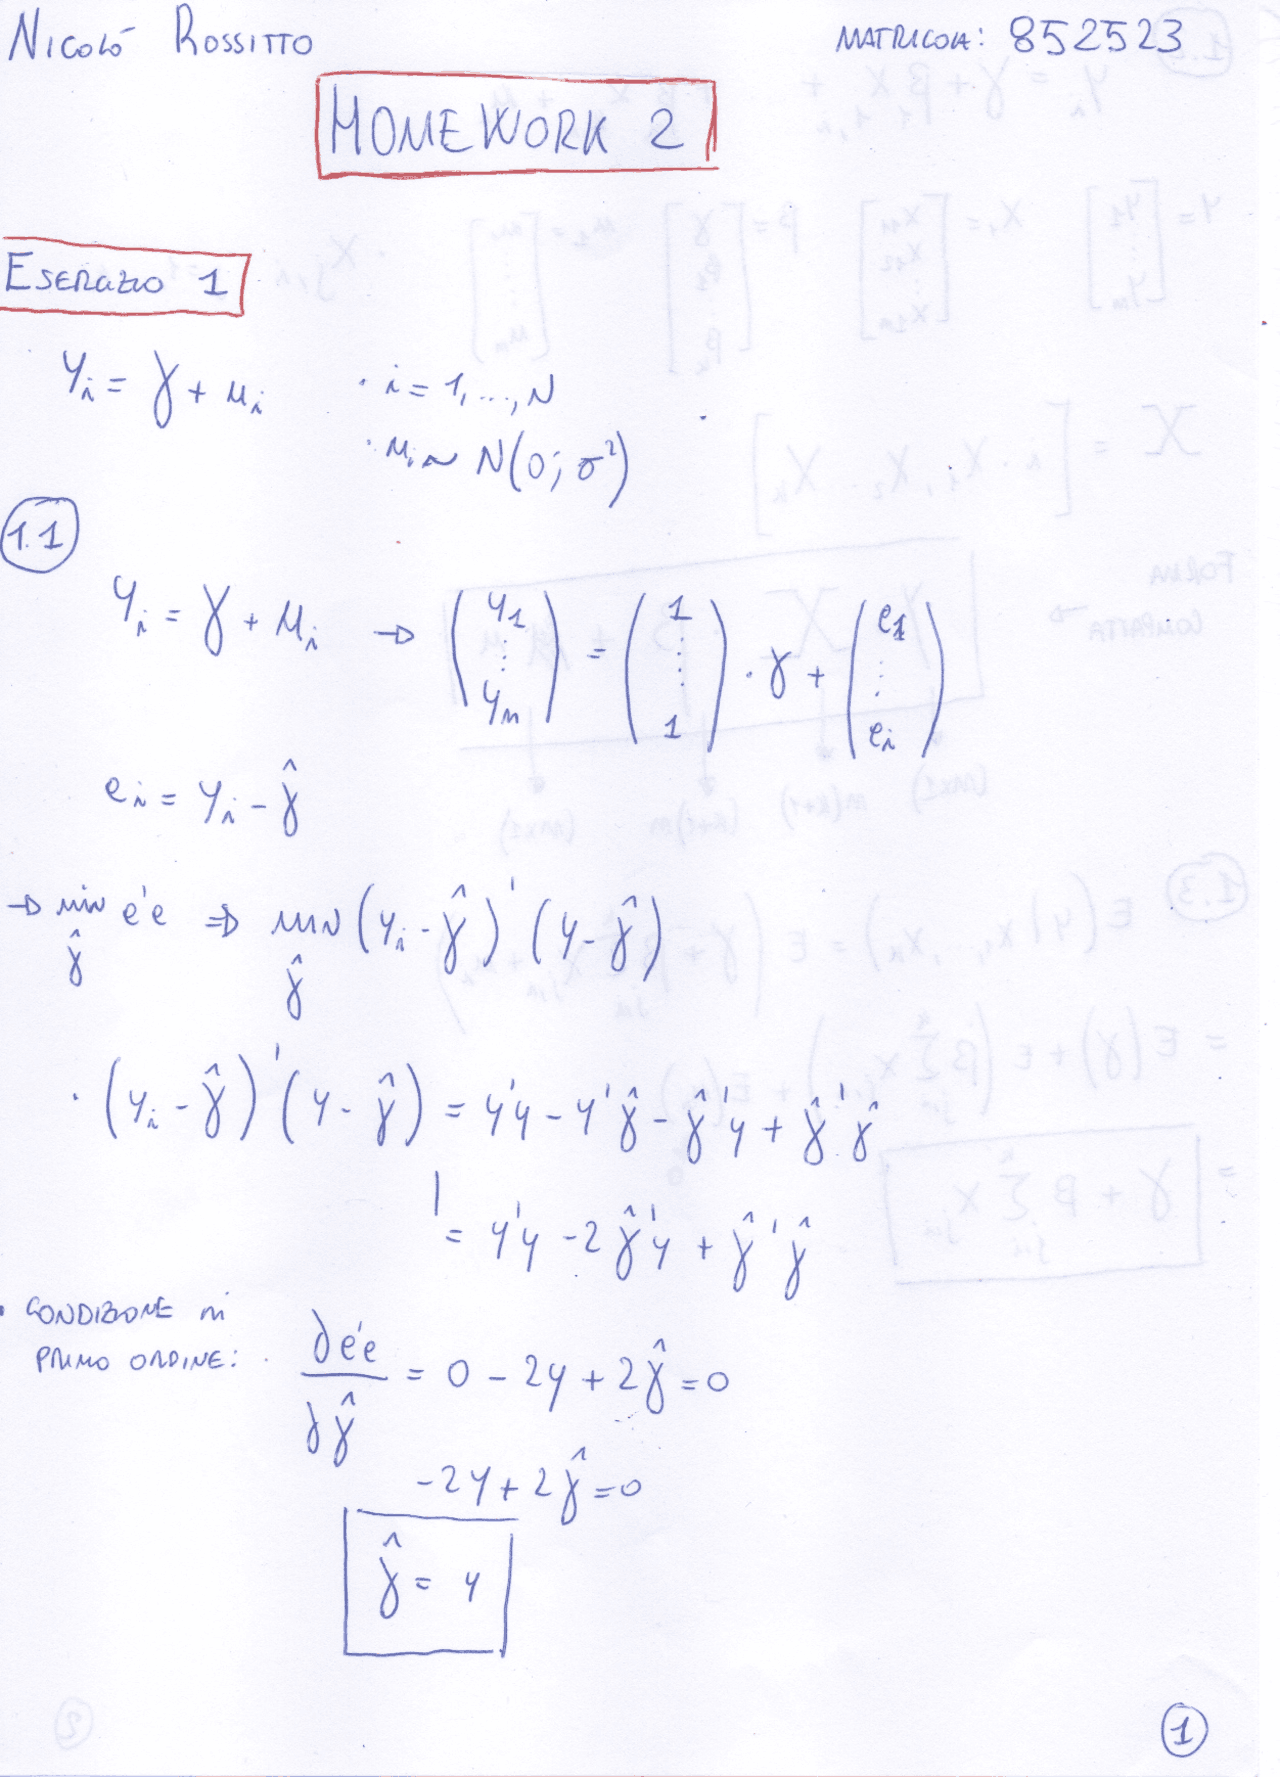 Nicoló Rossitto MATRICOLA: 852523
HOMEWORK 2
ESERCIZIO 1
y_i = γ + u_i · i = 1, ..., N
· u_i ~ N(0; σ²)
1.1
y_i = γ + u_i → (y_1 ⋮ y_n) = (1 ⋮ 1) · γ + (e_1 ⋮ e_i)
e_i = y_i - γ̂
→ min_γ̂ e'e ⇒ min_γ̂ (y_i - γ̂)' (y - γ̂)
· (y_i - γ̂)' (y - γ̂) = y'y - y'γ̂ - γ̂'y + γ̂'γ̂
= y'y - 2γ̂'y + γ̂'γ̂
· CONDIZIONE DI
PRIMO ORDINE: ∂e'e/∂γ̂ = 0 - 2y + 2γ̂ = 0
-2y + 2γ̂ = 0
γ̂ = y
1